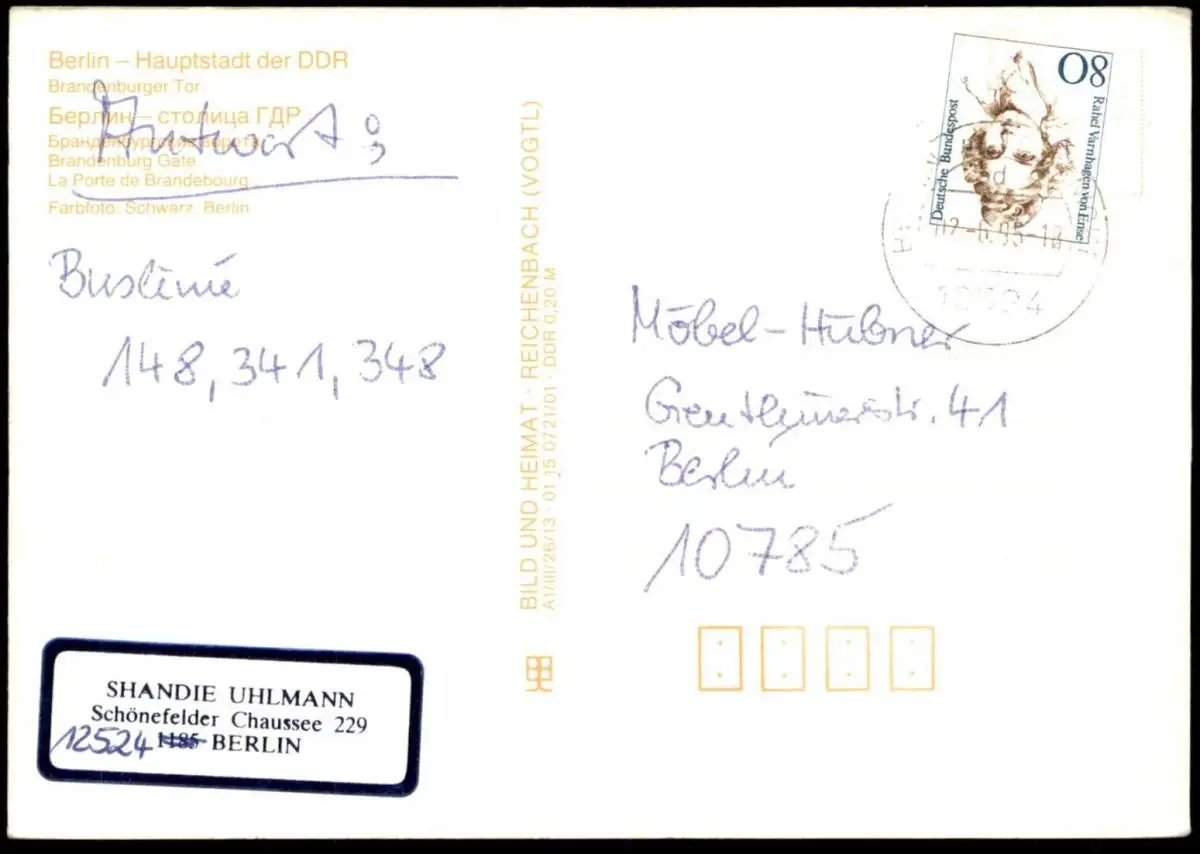 Berlin – Hauptstadt der DDR
Brandenburger Tor
Берлин – столица ГДР
Бранденбургские ворота
Brandenburg Gate
La Porte de Brandebourg
Farbfoto: Schwarz, Berlin
Antwort:
Buslinie
148, 341, 348
BILD UND HEIMAT · REICHENBACH (VOGTL)
A1/III/26/13 · 01 15 0721/01 · DDR 0,20 M
80
Deutsche Bundespost
Rahel Varnhagen von Ense
12524
Möbel-Hübner
Genthinerstr. 41
Berlin
10785
SHANDIE UHLMANN
Schönefelder Chaussee 229
12524 1185 BERLIN